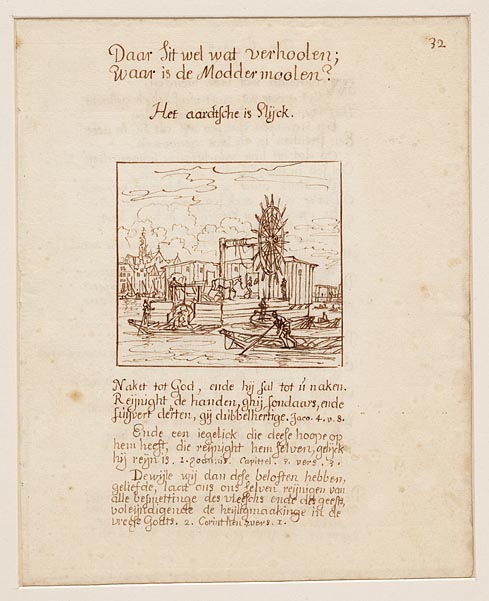 32
Daar Sit wel wat verhoolen;
Waar is de Moddermoolen?
Het aardtsche is Slijck.
Naket tot God, ende hij sal tot ú naken.
Reijnight de handen, ghij sondaars, ende
súijvert herten, gij dúbbelhertige. Jaco. 4. v. 8.
Ende een iegelick die deese hoope op
hem heeft, die reijnight hem selven, gelijck
hij reijn is. 1. Capittel. 3. vers. 3.
Dewijle wij dan dese beloften hebben,
geliefde, laat ons ons selven reijnigen van
alle besmettinge des vleeschs ende des geests,
voleijndigende de heijligmaakinge in de
vreese Godts. 2. Corinthen vers. 1.